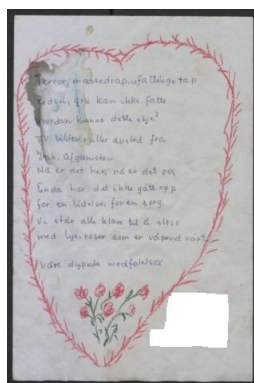 Terror, massedrap, ufattelige tap
Redsel, vi kan ikke fatte
Hvordan kunne dette skje?
TV bilder ruller avsted fra
Irak, Afganistan
Nå er det her, nå er det oss
Enda har det ikke gått opp
for en lidelse, for en sorg
Vi står alle klar til å slåss
med lys, roser som er våpend vårt
Våre dypeste medfølelser